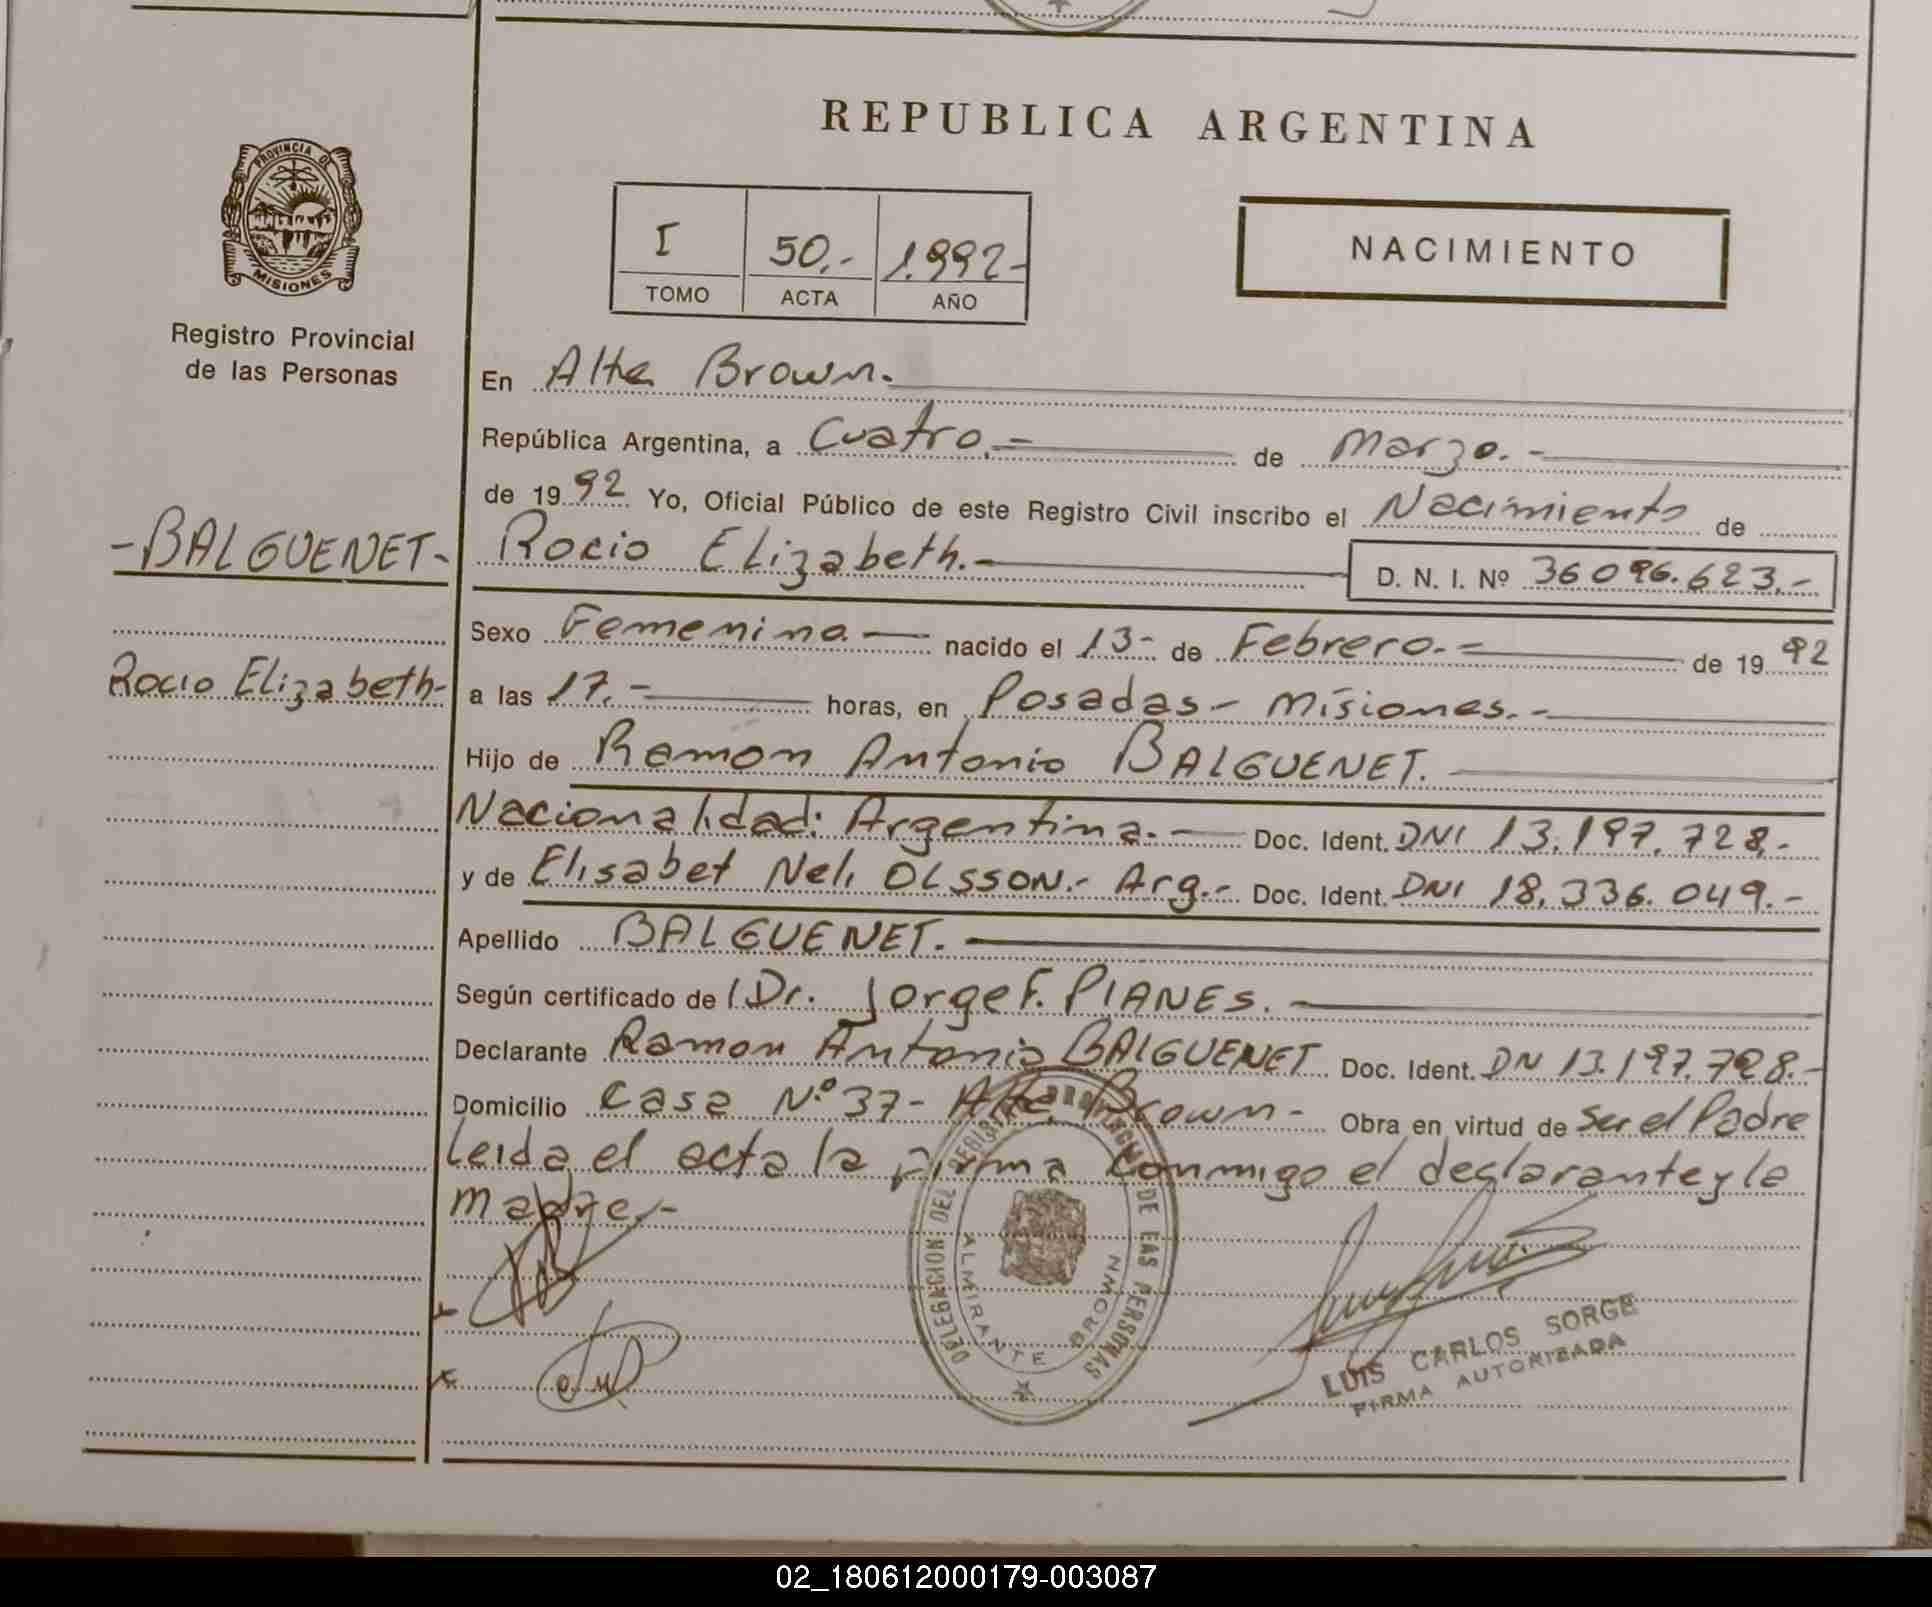 REPUBLICA ARGENTINA
PROVINCIA DE
MISIONES
Registro Provincial
de las Personas
I 50.- 1.992-
TOMO ACTA AÑO
NACIMIENTO
En Alte Brown.
República Argentina, a Cuatro.- de Marzo.-
de 1992 Yo, Oficial Público de este Registro Civil inscribo el Nacimiento de
-BALGUENET-
Rocio Elizabeth.- D. N. I. Nº 36096.623.-
Sexo Femenina.- nacido el 13- de Febrero.- de 1992
Rocio Elizabeth-
a las 17.- horas, en Posadas- Misiones.-
Hijo de Ramon Antonio BALGUENET.
Nacionalidad: Argentina.- Doc. Ident. DNI 13.197.728.-
y de Elisabet Neli OLSSON.- Arg.- Doc. Ident. DNI 18.336.049.-
Apellido BALGUENET.
Según certificado de Dr. Jorge F. PIANES.
Declarante Ramon Antonio BALGUENET Doc. Ident. DN 13.197.728.-
Domicilio Casa Nº 37- Alte Brown- Obra en virtud de Ser el Padre
Leida el acta la firma conmigo el declarante y la
Madre.-
DELEGACION DEL REGISTRO PROVINCIAL DE LAS PERSONAS
ALMIRANTE BROWN
LUIS CARLOS SORGE
FIRMA AUTORIZADA
02_180612000179-003087